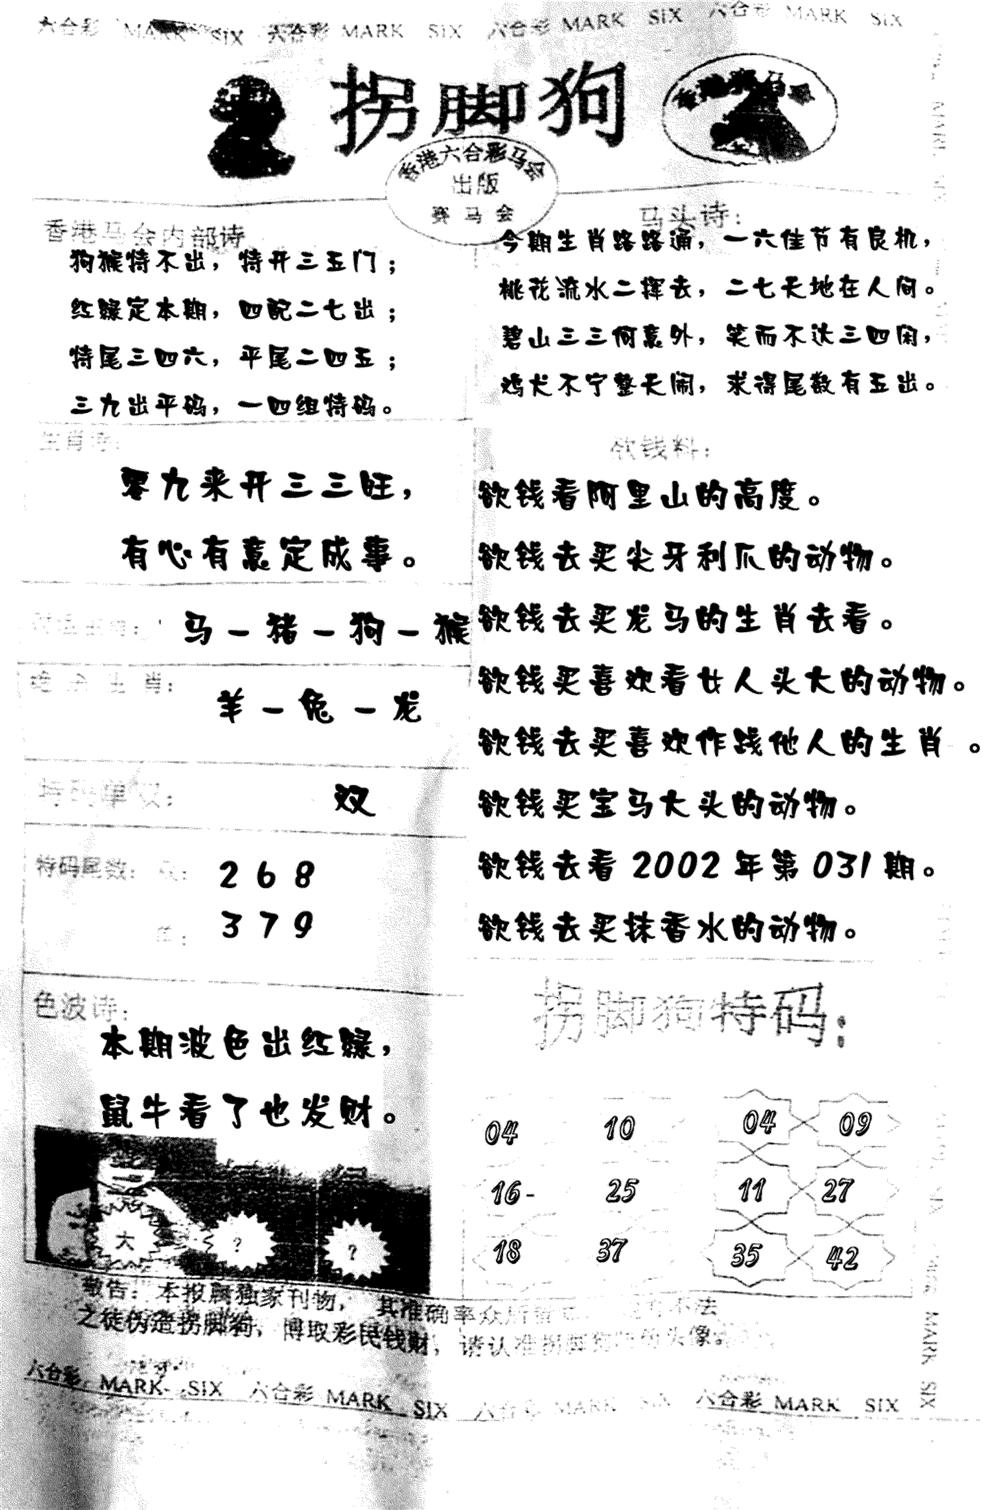 六合彩 MARK SIX 六合彩 MARK SIX 六合彩 MARK SIX 六合彩 MARK SIX
拐脚狗
香港赛马会
香港六合彩马会
出版
赛马会
香港马会内部诗
狗猴特不出，特开三五门；
红绿定本期，四配二七出；
特尾三四六，平尾二四五；
三九出平码，一四组特码。
马头诗：
今期生肖路路通，一六佳节有良机，
桃花流水二挥去，二七天地在人间。
碧山三三何意外，笑而不达三四闲，
鸡犬不宁整天闹，求得尾数有五出。
生肖诗：
零九来开三三旺，
有心有意定成事。
马－猪－狗－猴
绝杀生肖：
羊－兔－龙
特码单双：
双
特码尾数：双：
2 6 8
单：
3 7 9
色波诗：
本期波色出红绿，
鼠牛看了也发财。
大 ? ?
欲钱料：
欲钱看阿里山的高度。
欲钱去买尖牙利爪的动物。
欲钱去买龙马的生肖去看。
欲钱买喜欢看女人头大的动物。
欲钱去买喜欢作践他人的生肖 。
欲钱买宝马大头的动物。
欲钱去看 2002 年第 031 期。
欲钱去买抹香水的动物。
拐脚狗特码：
04 10 04 09
16- 25 11 27
18 37 35 42
敬告：本报属独家刊物，其准确率众所
不法
之徒伪造拐脚狗，博取彩民钱财，请认准拐脚狗
头像。
六合彩 MARK SIX 六合彩 MARK SIX 六合彩 MARK SIX 六合彩 MARK SIX
MARK SIX